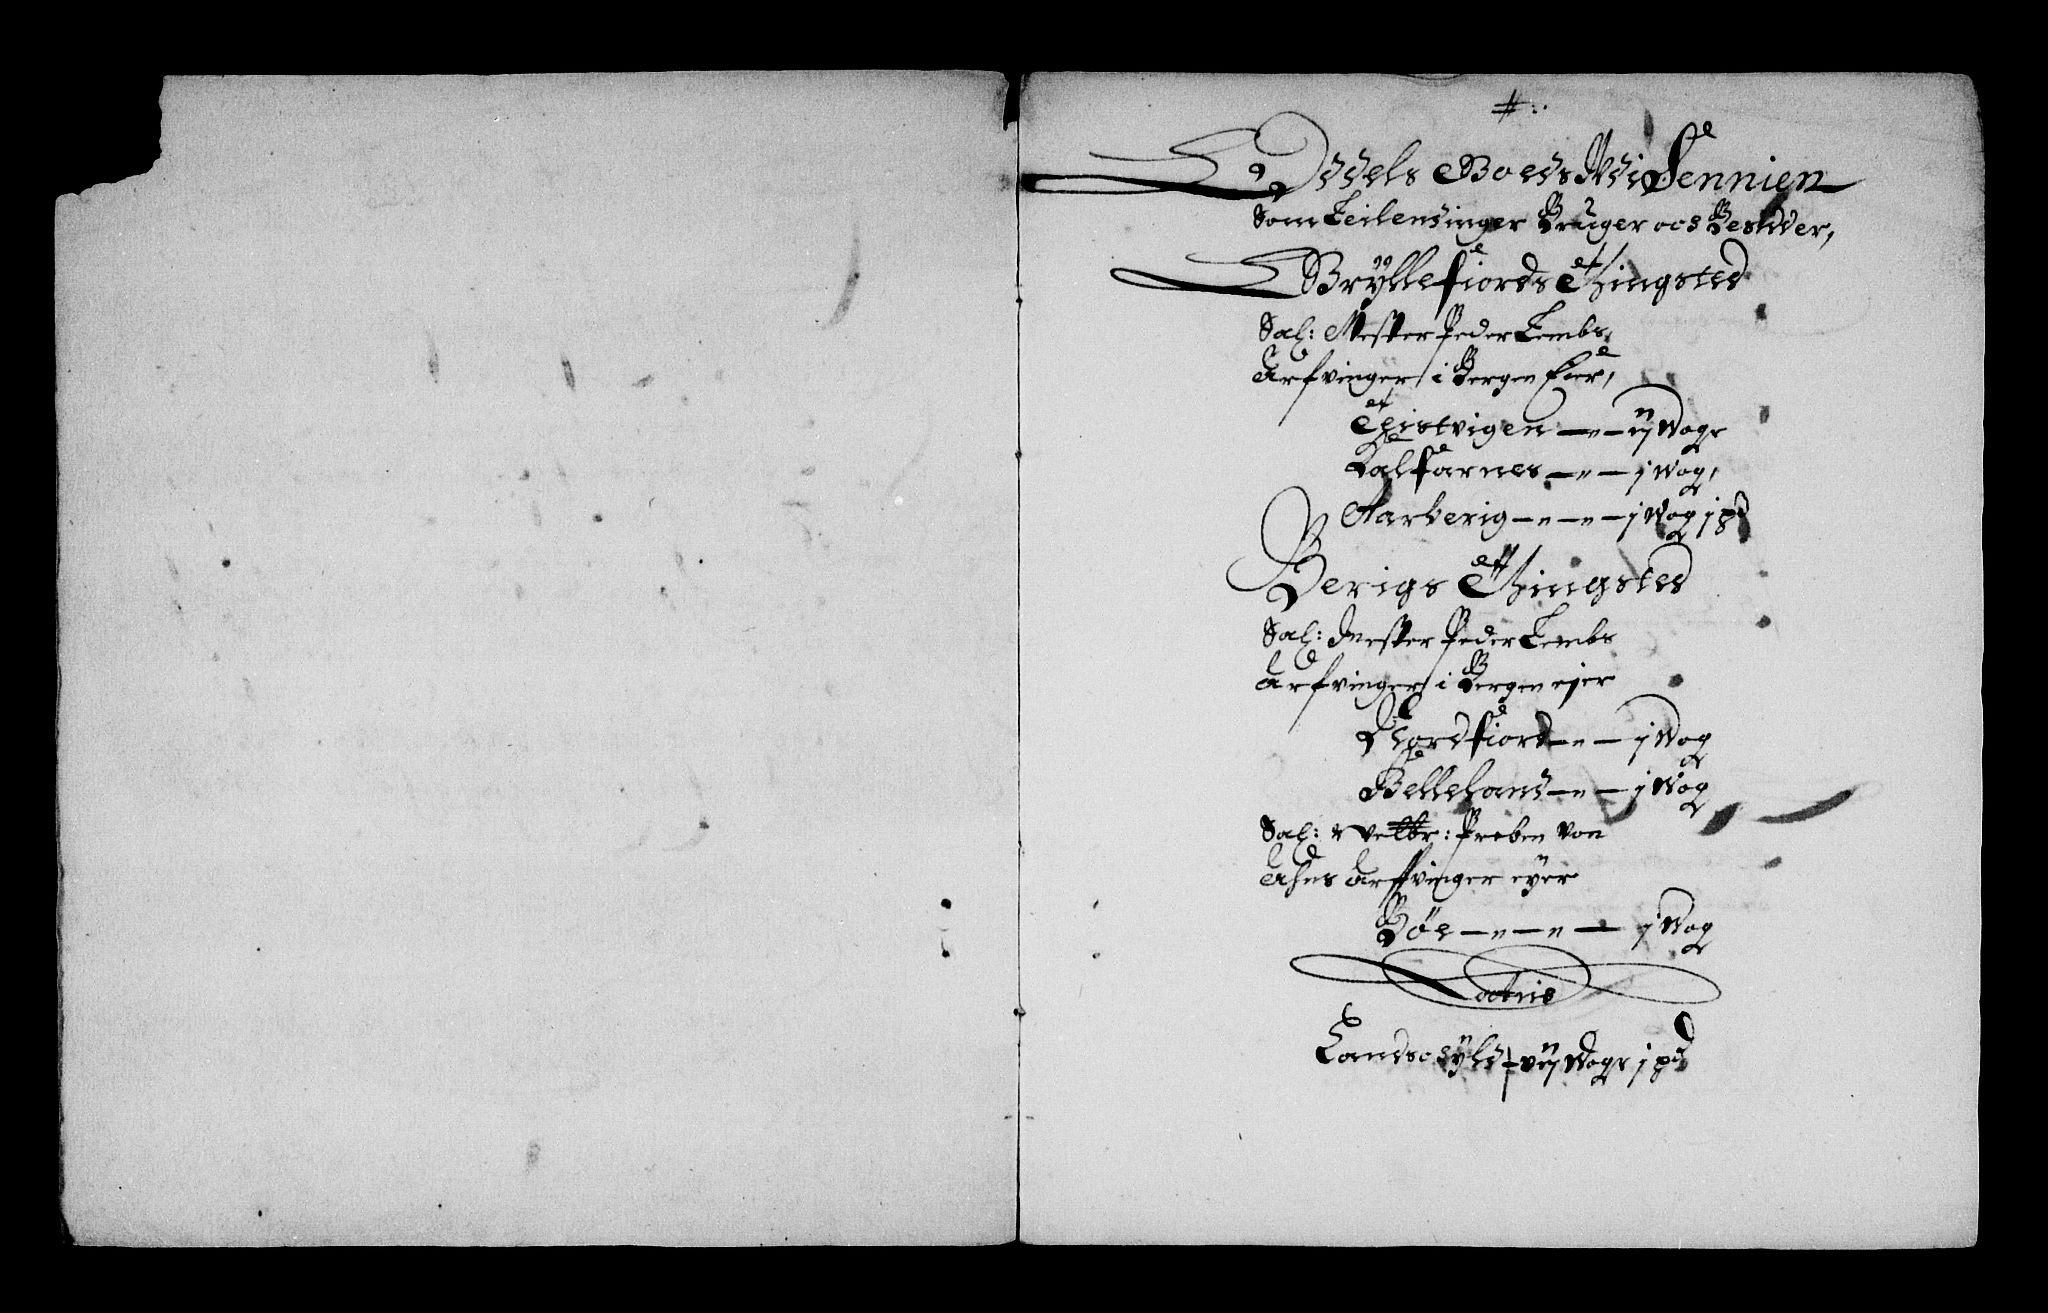 Odels Gods Wdi Sennien
Som Leilendinger Bruger och Besidder,
Bryllefiords Thingsted
Sal: Mester Peder Lembs,
Arfvinger i Bergen Eier,
Thistvigen — ij Woge
Kalfarnes — j Wog,
Aarberig — j Wog j pd
Berigs Thingsted
Sal: Mester Peder Lembs
Arfvinger i Bergen ejer
Nordfiord — j Wog
Belleland — j Wog
Sal: Velbr: Preben von
Ahns Arffvinger eyer
Böe — j Wog
Lateris
Landschyld — vij Woge j pd